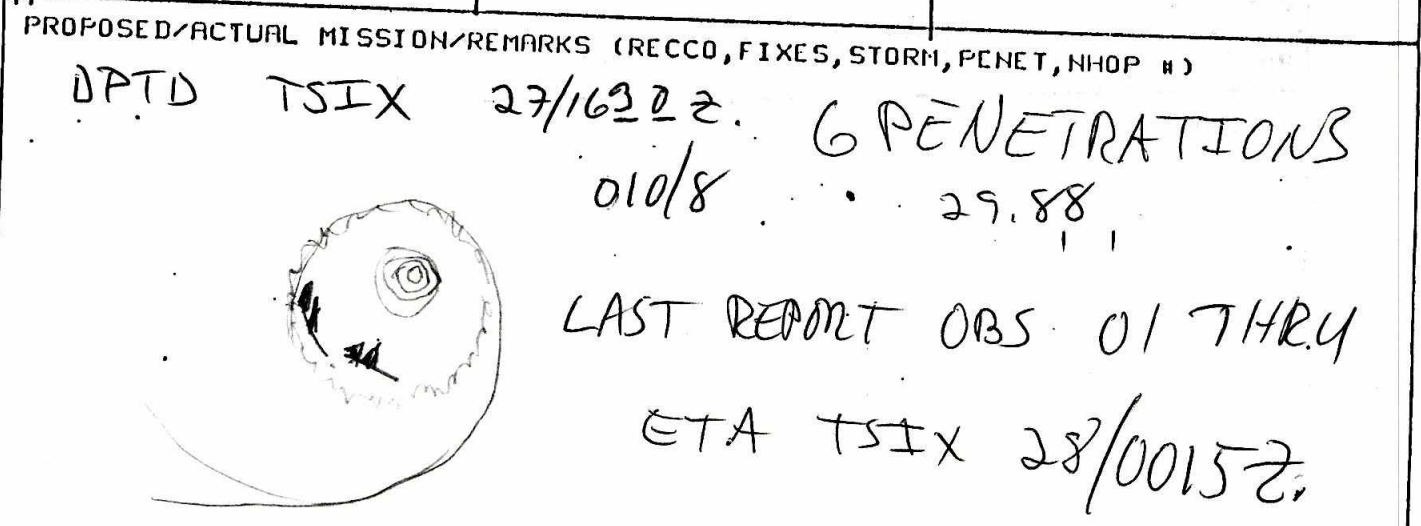 PROPOSED/ACTUAL MISSION/REMARKS (RECCO,FIXES,STORM,PENET,NHOP #)
DPTD TSIX 27/1630Z. 6 PENETRATIONS
010/8 29.88
LAST REPORT OBS 01 THRU
ETA TSIX 28/0015Z.